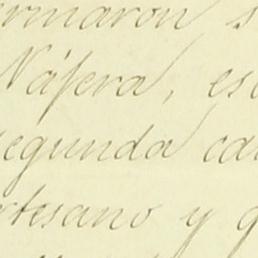 ermaron s
Nájera, es
segunda ca
rtesano y q